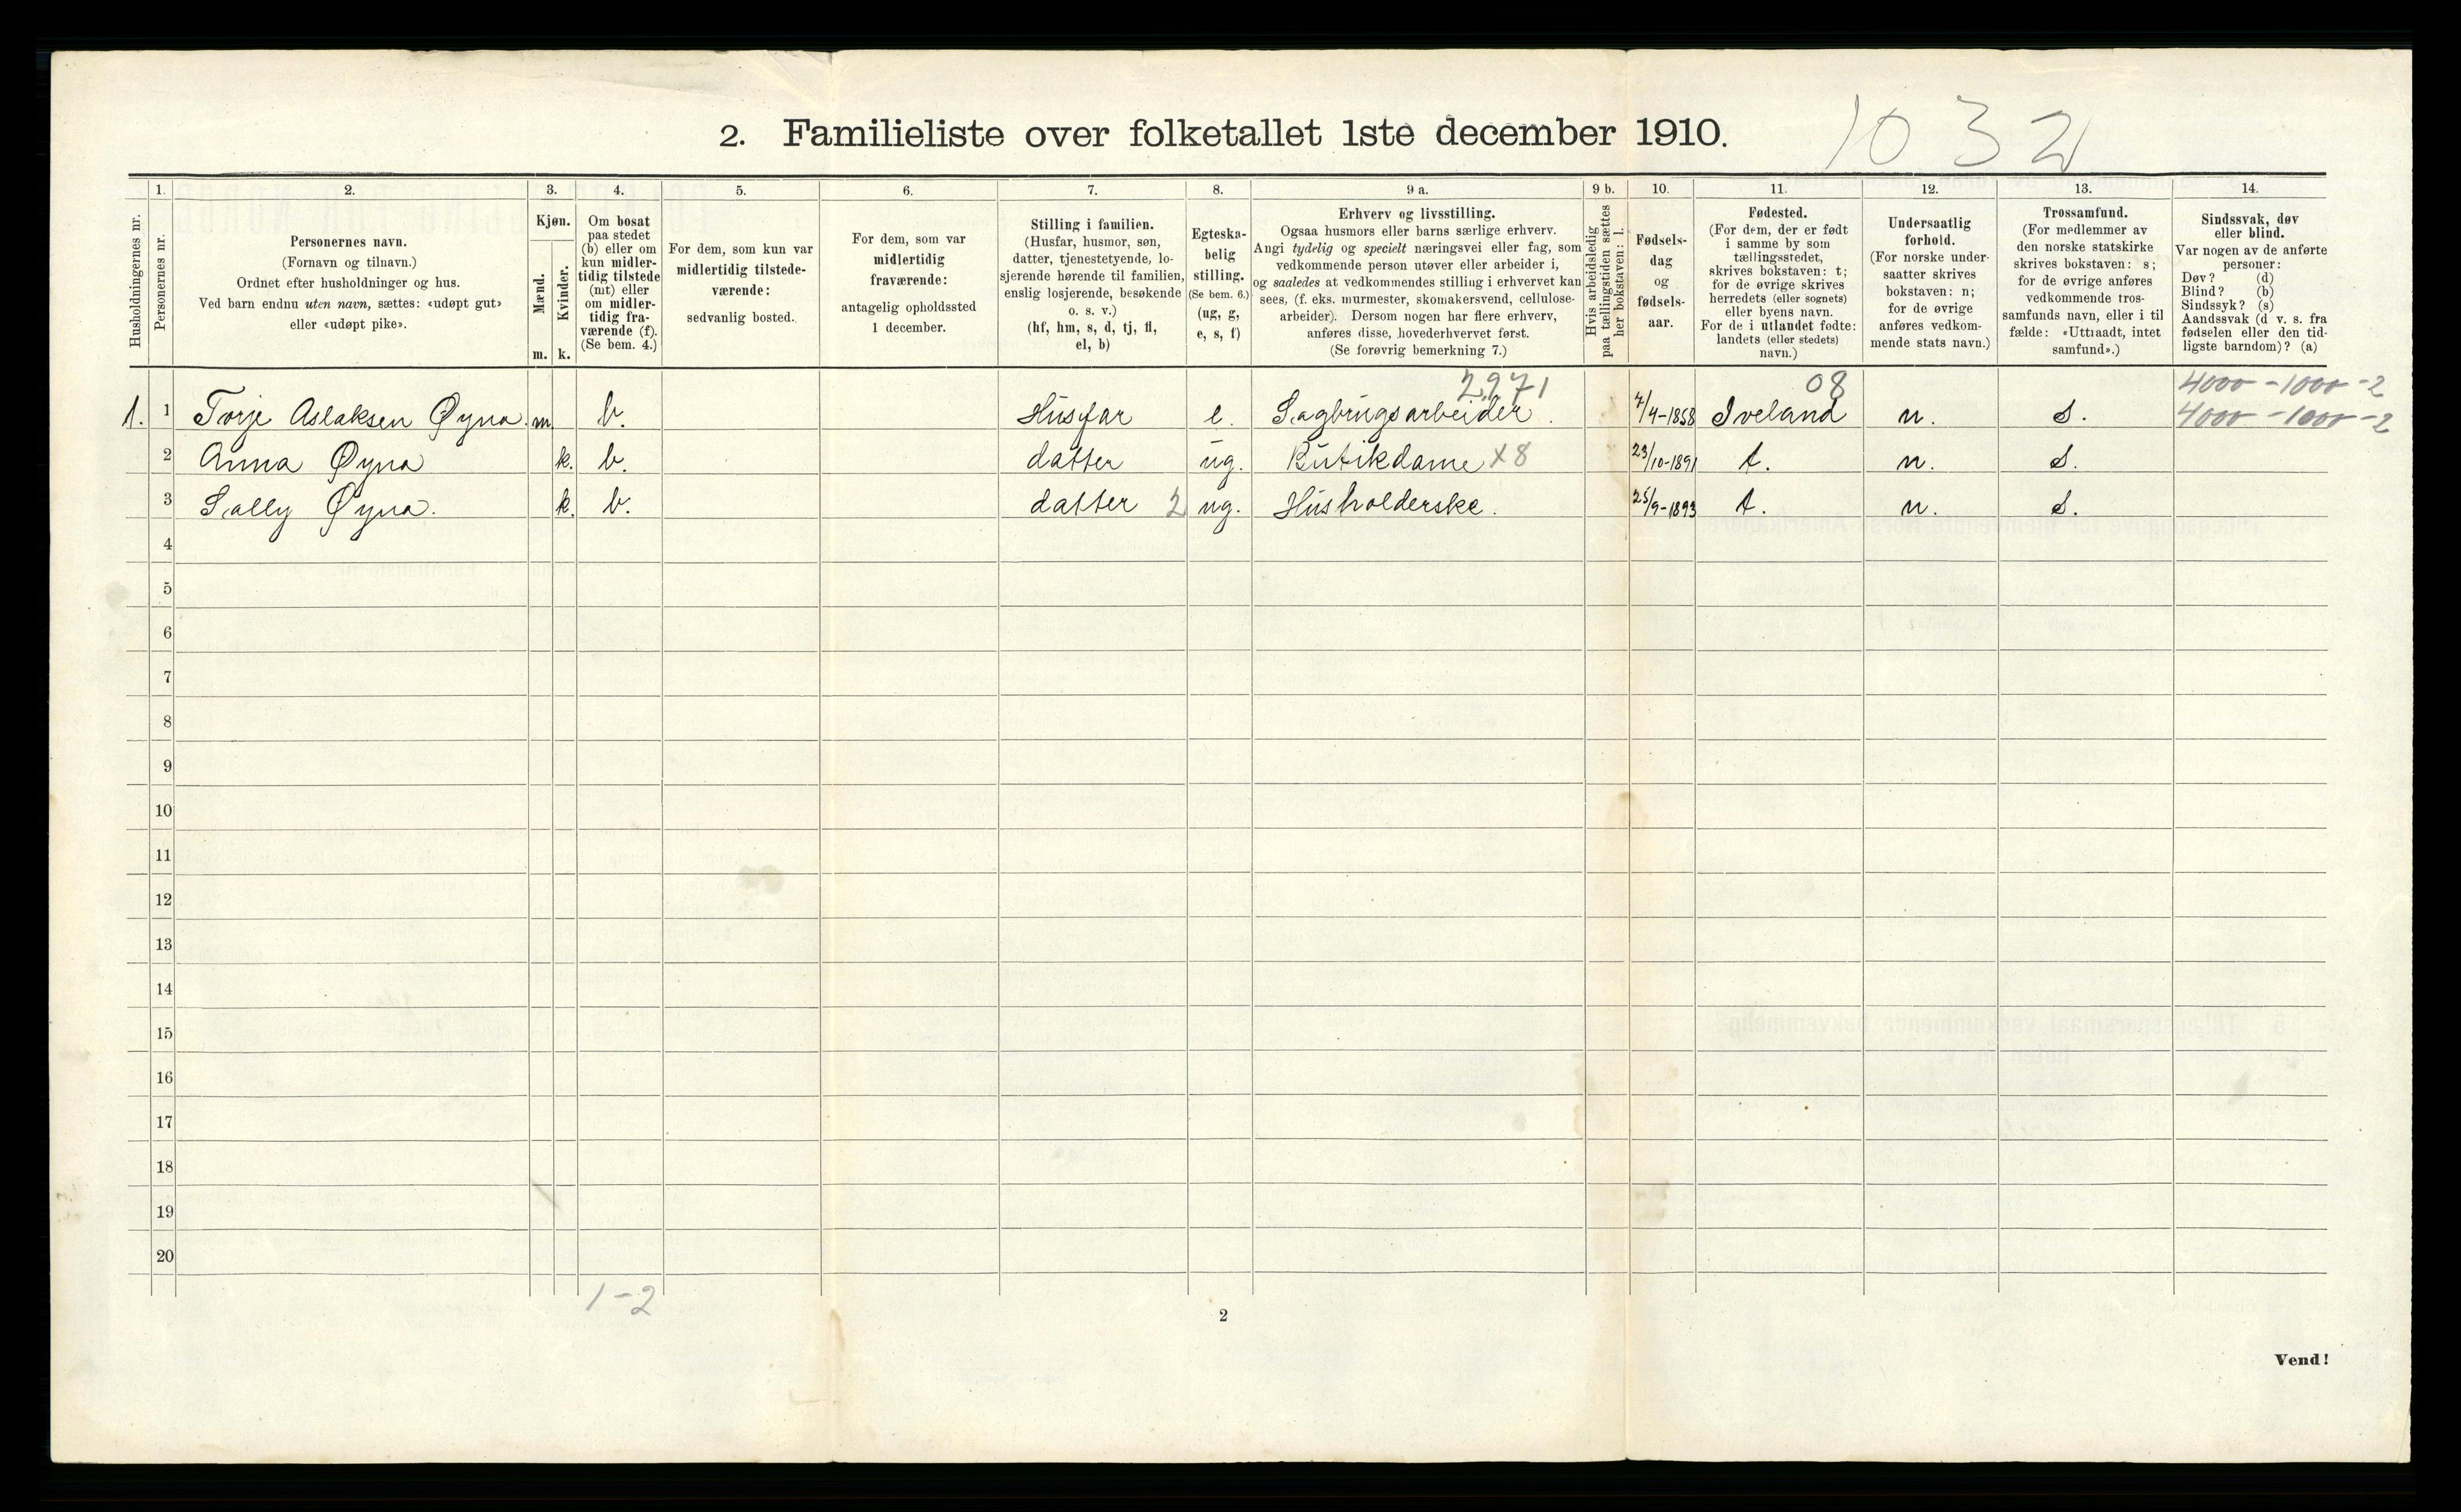 1032
2. Familieliste over folketallet 1ste december 1910.
1. 2. 3. 4. 5. 6. 7. 8. 9 a. 9 b. 10. 11. 12. 13. 14.
Husholdningernes nr.
Personernes nr.
Personernes navn.
(Fornavn og tilnavn.)
Ordnet efter husholdninger og hus.
Ved barn endnu uten navn, sættes: «udøpt gut»
eller «udøpt pike».
Kjøn.
Mænd.
Kvinder.
m. k.
Om bosat
paa stedet
(b) eller om
kun midler-
tidig tilstede
(mt) eller
om midler-
tidig fra-
værende (f).
(Se bem. 4.)
For dem, som kun var
midlertidig tilstede-
værende:
sedvanlig bosted.
For dem, som var
midlertidig
fraværende:
antagelig opholdssted
1 december.
Stilling i familien.
(Husfar, husmor, søn,
datter, tjenestetyende, lo-
sjerende hørende til familien,
enslig losjerende, besøkende
o. s. v.)
(hf, hm, s, d, tj, fl,
el, b)
Egteska-
belig
stilling.
(Se bem. 6.)
(ug, g,
e, s, f)
Erhverv og livsstilling.
Ogsaa husmors eller barns særlige erhverv.
Angi tydelig og specielt næringsvei eller fag, som
vedkommende person utøver eller arbeider i,
og saaledes at vedkommendes stilling i erhvervet kan
sees, (f. eks. murmester, skomakersvend, cellulose-
arbeider). Dersom nogen har flere erhverv,
anføres disse, hovederhvervet først.
(Se forøvrig bemerkning 7.)
Hvis arbeidsledig
paa tællingstiden sættes
her bokstaven: l.
Fødsels-
dag
og
fødsels-
aar.
Fødested.
(For dem, der er født
i samme by som
tællingsstedet,
skrives bokstaven: t;
for de øvrige skrives
herredets (eller sognets)
eller byens navn.
For de i utlandet fødte:
landets (eller stedets)
navn.)
Undersaatlig
forhold.
(For norske under-
saatter skrives
bokstaven: n;
for de øvrige
anføres vedkom-
mende stats navn.)
Trossamfund.
(For medlemmer av
den norske statskirke
skrives bokstaven: s;
for de øvrige anføres
vedkommende tros-
samfunds navn, eller i til
fælde: «Uttraadt, intet
samfund».)
Sindssvak, døv
eller blind.
Var nogen av de anførte
personer:
Døv? (d)
Blind? (b)
Sindssyk? (s)
Aandssvak (d v. s. fra
fødselen eller den tid-
ligste barndom)? (a)
2,971 08 4000-1000-2
1. 1 Torje Aslaksen Øyna. m. b. Husfar e. Sagbrugsarbeider. 7/4-1858 Iveland n. S. 4000-1000-2
2 Anna Øyna k. b. datter ug. Butikdame x8 23/10-1891 t. n. S.
3 Sally Øyna. k. b. datter 2 ug. Husholderske. 25/9-1893 t. n. S.
4
5
6
7
8
9
10
11
12
13
14
15
16
17
18
19
20
1-2
2
Vend!